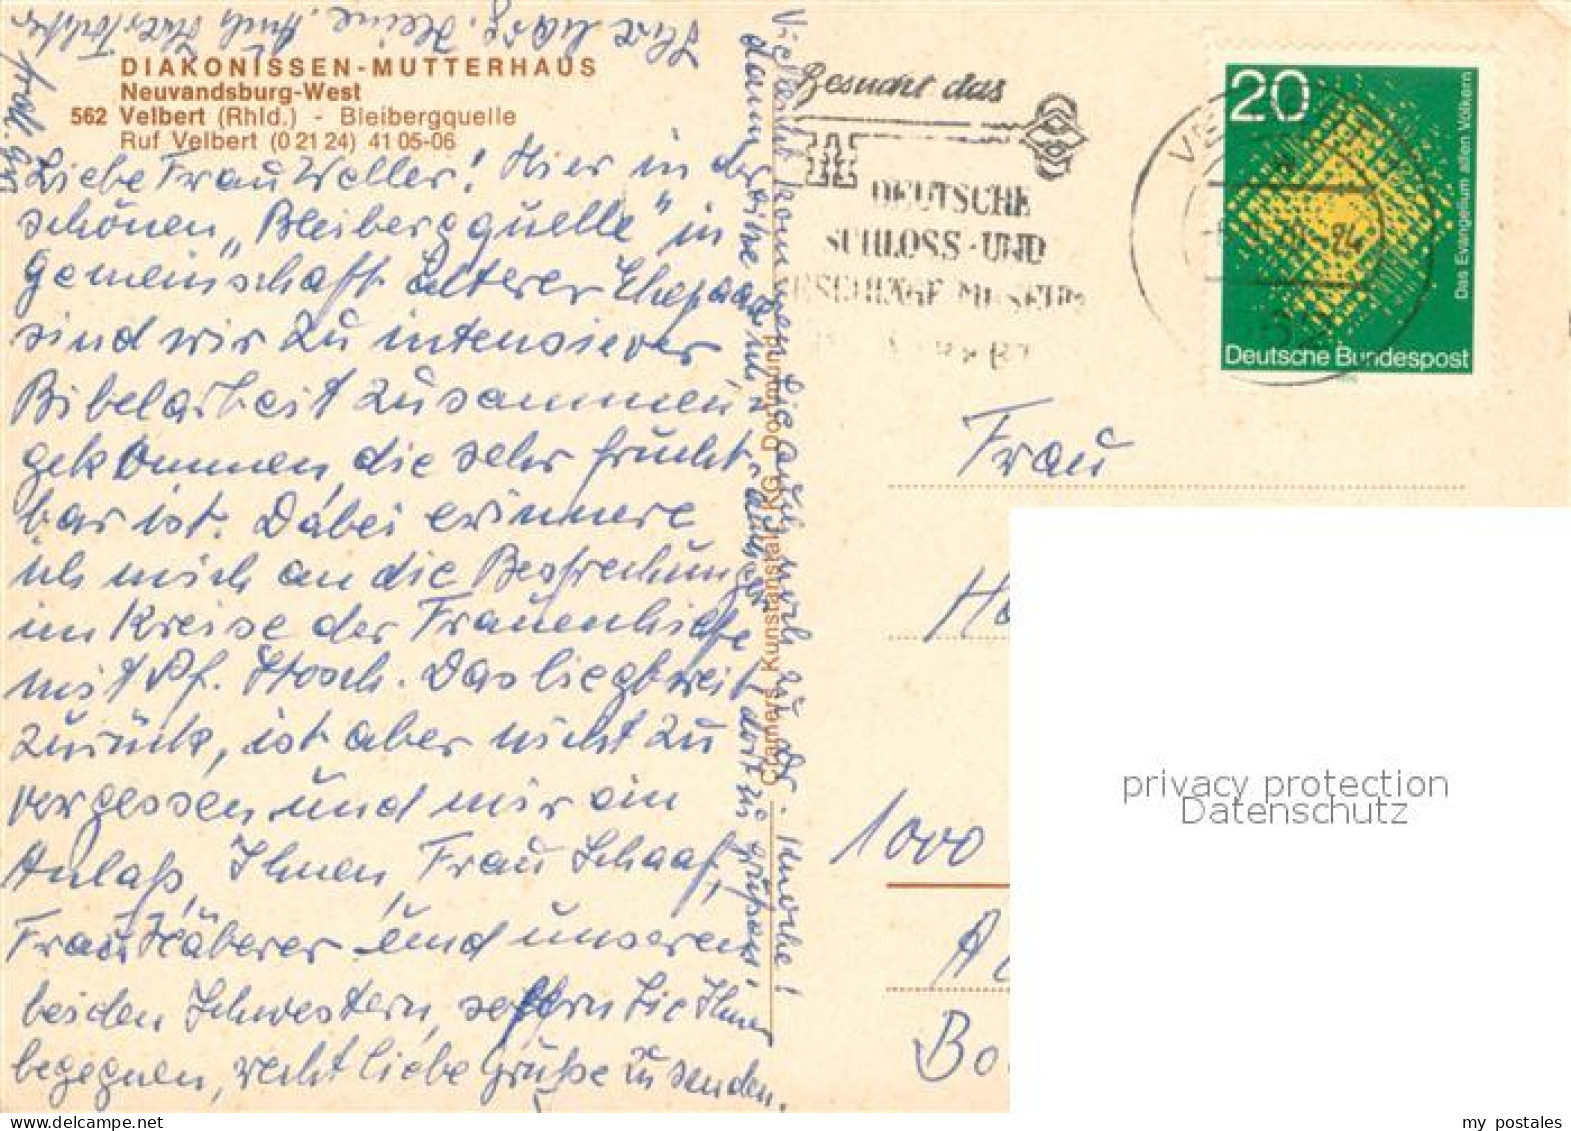 DIAKONISSEN-MUTTERHAUS
Neuvandsburg-West
562 Velbert (Rhld.) - Bleibergquelle
Ruf Velbert (0 21 24) 41 05-06
Liebe Frau Weller! Hier in der
schönen „Bleibergquelle" in
Gemeinschaft älterer Ehepaare
sind wir zu intensiever
Bibelarbeit zusammen
gekommen, die sehr frucht-
bar ist. Dabei erinnere
ich mich an die Besprechungen
im Kreise der Frauenhilfe
mit Pf. Stosch. Das liegt weit
zurück, ist aber nicht zu
vergessen und mir ein
Anlaß, Ihnen, Frau Schaaf,
Frau Häberer und unseren
beiden Schwestern, sofern Sie Ihnen
begegnen, recht liebe Grüße zu senden.
Vielleicht kommen Sie auch noch zu Dr. Knoche!
dann dort zu grüßen!
Ihre Marg. Heine.
Cramers Kunstanstalt KG, Dortmund
Besucht das
DEUTSCHE
SCHLOSS-UND
BESCHLÄGE MUSEUM
20
Das Evangelium allen Völkern
Deutsche Bundespost
Frau
1000
privacy protection
Datenschutz
my postales